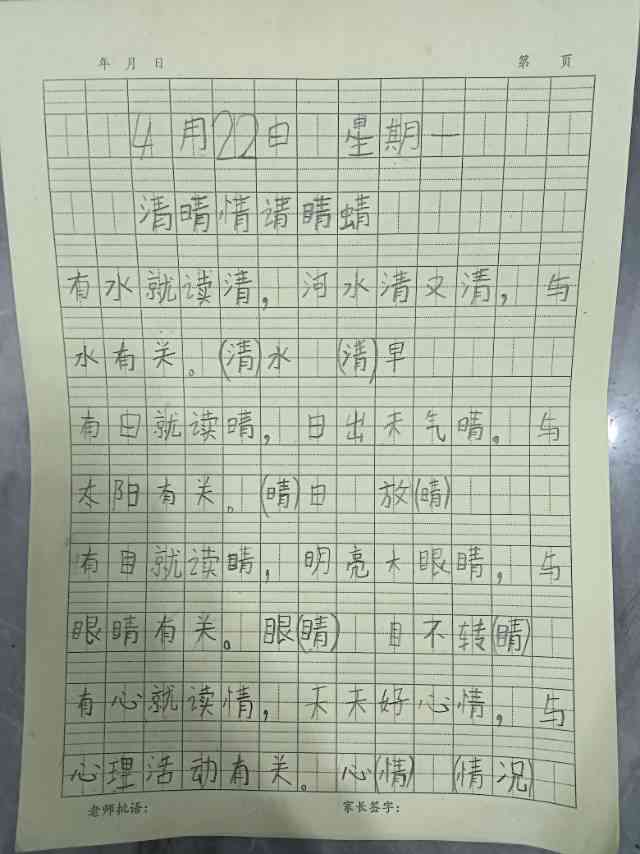 年 月 日 第 页
4月22日 星期一
清晴情请睛蜻
有水就读清，河水清又清，与
水有关。(清)水 (清)早
有日就读晴，日出天气晴。与
太阳有关。(晴)日 放(晴)
有目就读睛，明亮大眼睛，与
眼睛有关。眼(睛) 目不转(睛)
有心就读情，天天好心情，与
心理活动有关。心(情) (情况)
老师批语： 家长签字：